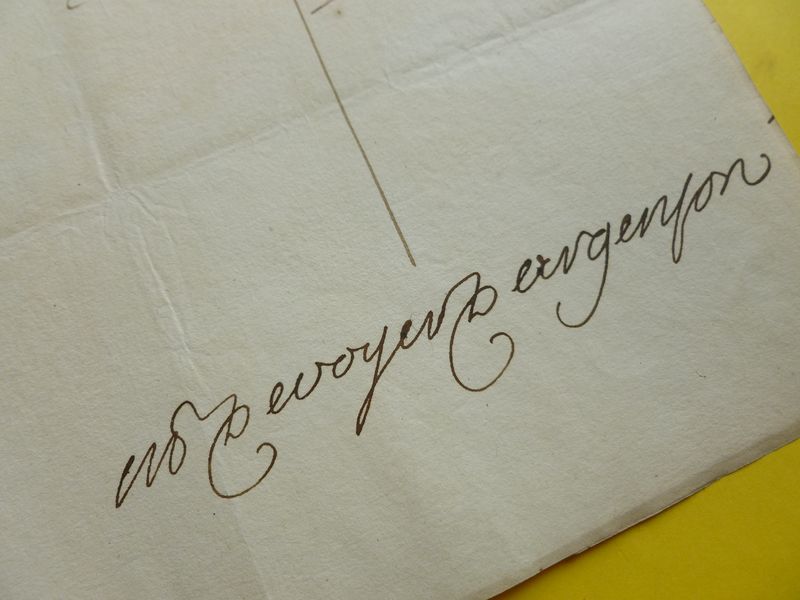 mr Devoyer Deargenson